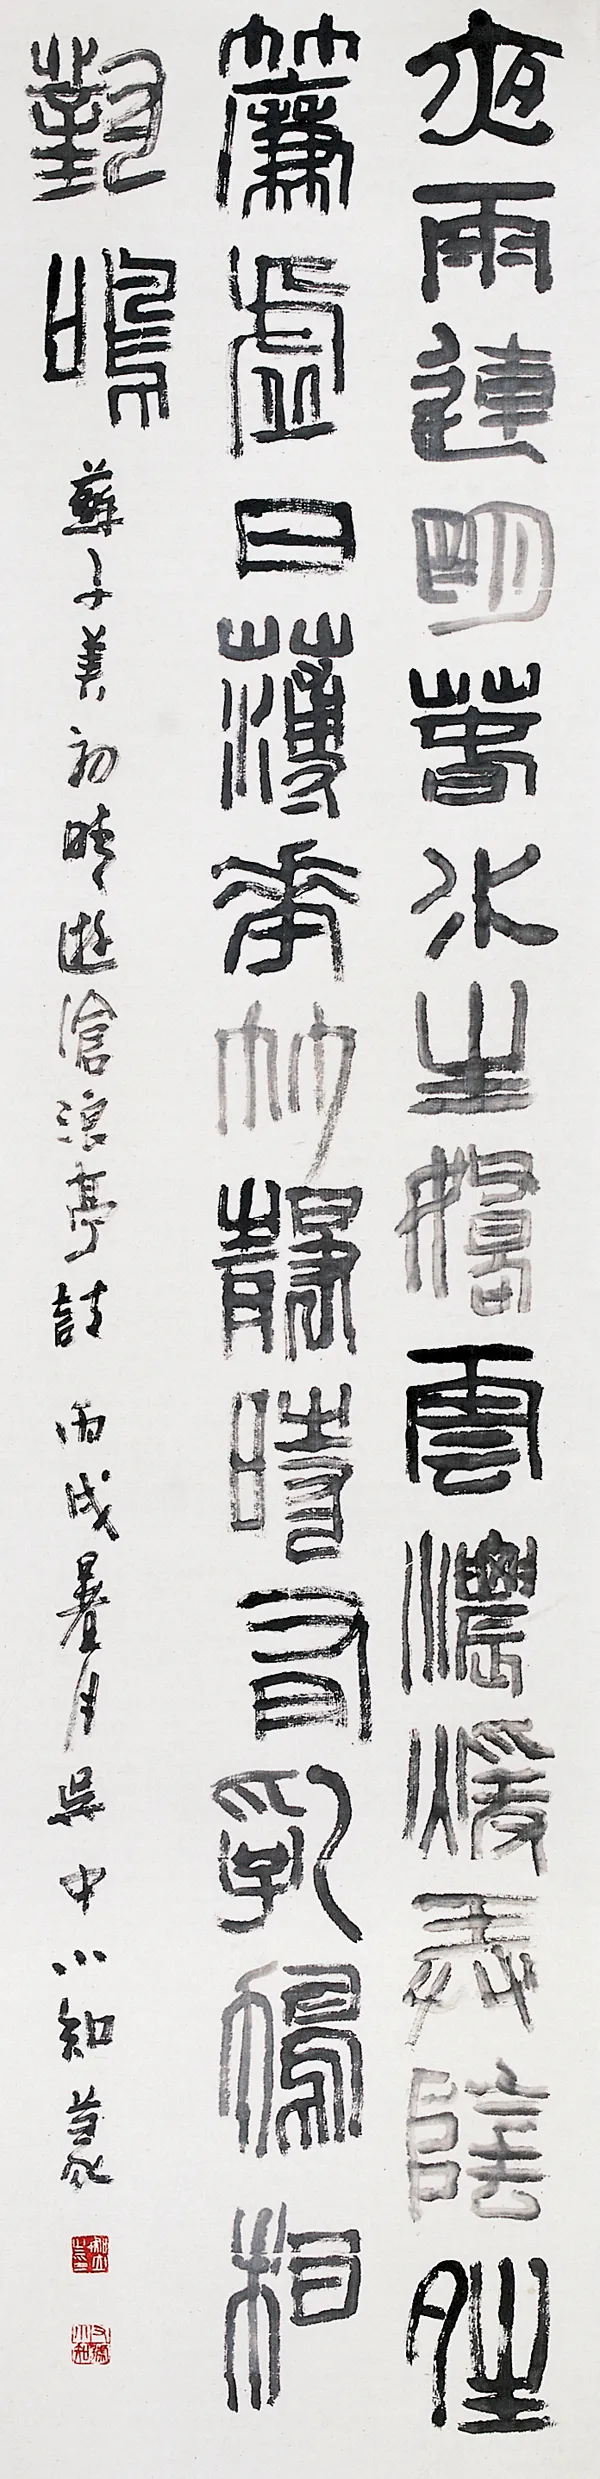 夜雨連明春水生嬌雲濃煖弄陰晴
簾虛日薄花竹靜時有乳鳩相
對鳴
蘇子美初晴遊滄浪亭詩 丙戌暑月吳中小知篆